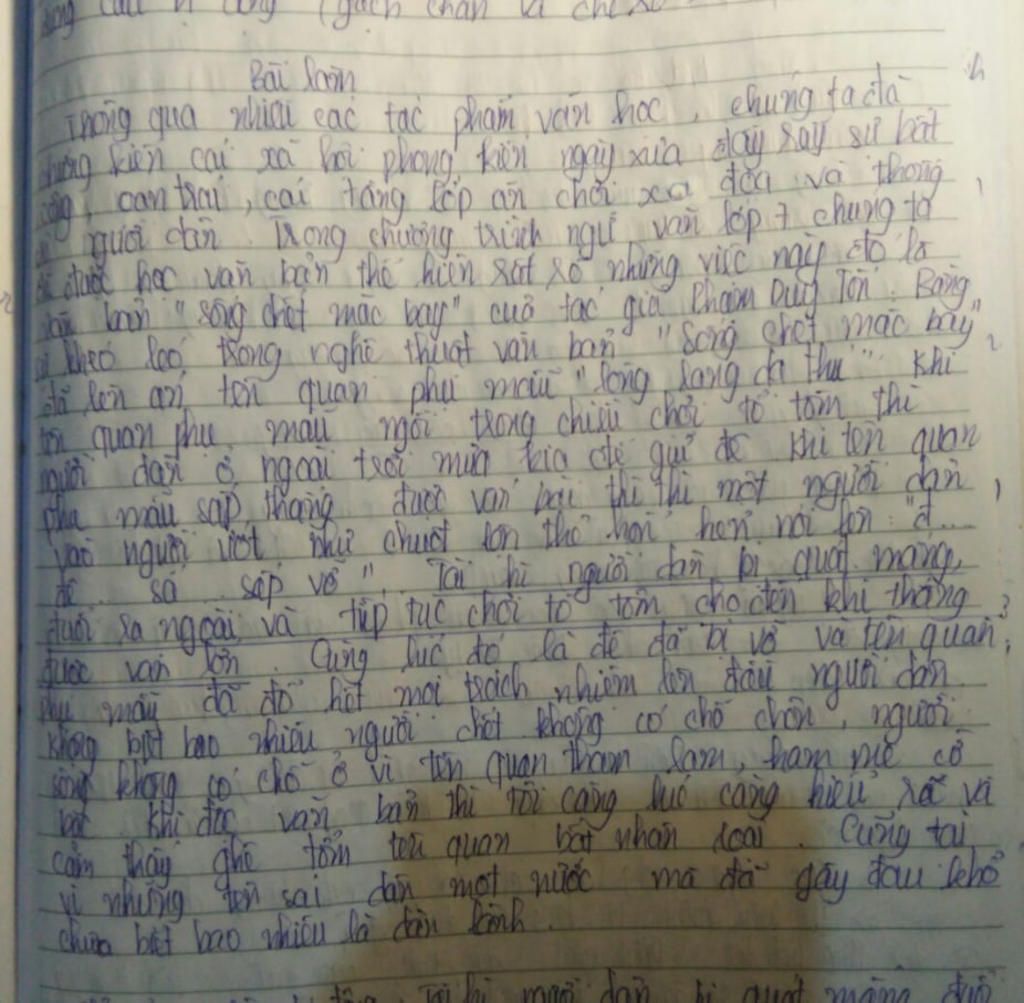 dụng câu bị động (gạch chân và chỉ rõ
Bài làm
Thông qua nhiều các tác phẩm văn học, chúng ta đã
kiến cái xã hội phong kiến ngày xưa đầy rẫy sự bất
công, oan trái, cái tầng lớp ăn chơi xa đọa và thống
người dân. Trong chương trình ngữ văn lớp 7 chúng ta
được học văn bản thể hiện rất rõ những việc này đó là
văn bản "sống chết mặc bay" của tác giả Phạm Duy Tốn. Bằng
sự khéo léo trong nghệ thuật văn bản "Sống chết mặc bay"
đã lên án tên quan phụ mẫu "lòng lang dạ thú". Khi
tên quan phụ mẫu ngồi trong chiếu chơi tổ tôm thì
người dân ở ngoài trời mưa kia để giữ đê. Khi tên quan
phụ mẫu sắp thắng được ván bài thì thì một người dân
vào người ướt như chuột lột thở hổn hển nói lên: "đ...
đê... sả... sắp vỡ". Tại hì người dân bị quát mắng,
đuổi ra ngoài và tiếp tục chơi tổ tôm cho đến khi thắng
được ván lớn. Cùng lúc đó là đê đã bị vỡ và tên quan
phụ mẫu đã đổ hết mọi trách nhiệm lên đầu người dân.
Không biết bao nhiêu người chết không có chỗ chôn, người
sống không có chỗ ở vì tên quan tham lam, ham mê cờ
bạc. Khi đọc văn bản thì tôi càng lúc càng hiểu rõ và
cảm thấy ghê tởm tên quan bất nhân loại. Cũng tại
vì những tên sai dân một nước mà đã gây đau khổ
chưa biết bao nhiêu là dân lành.
Tại hì người dân bị quát mắng đuổi